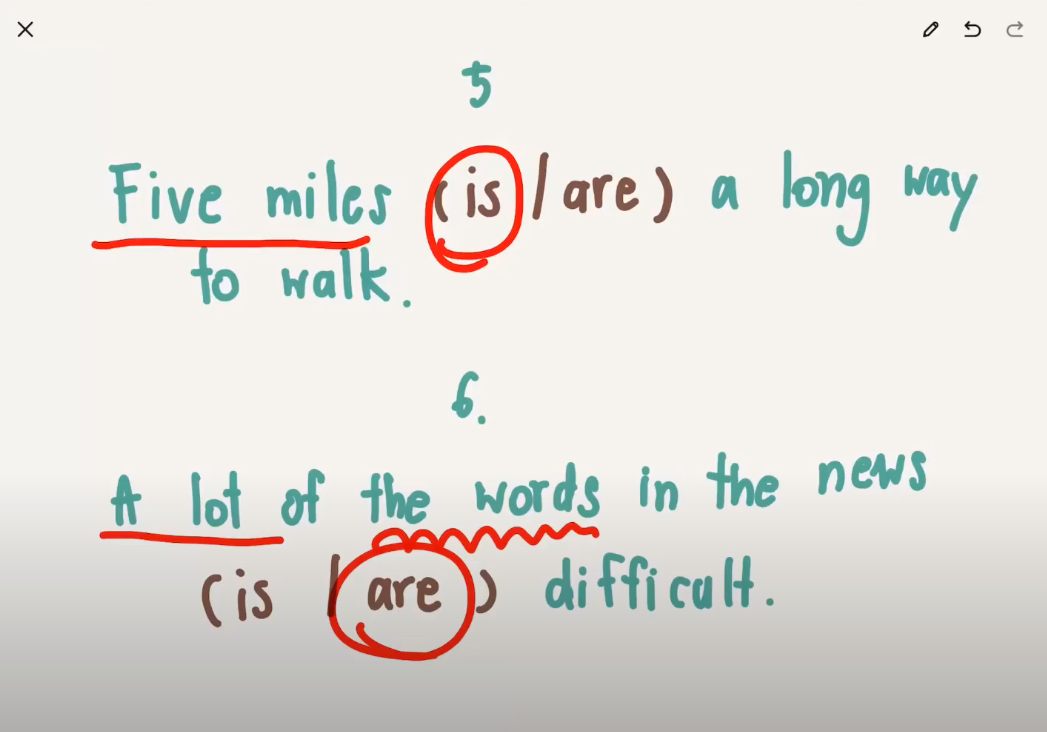 5
Five miles (is / are) a long way
to walk.
6.
A lot of the words in the news
(is / are) difficult.